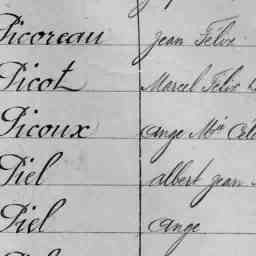 Picoreau Jean Félix
Picot Marcel Félix
Picoux Ange Mia
Piel Albert Jean
Piel Ange